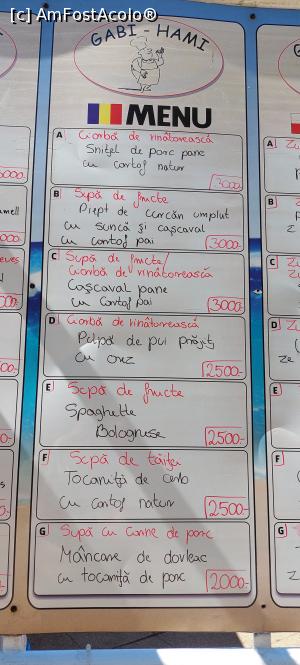 [c] AmFostAcolo®
GABI - HAMI
MENU
A Ciorbă de vînătorească
Snițel de porc pane
cu cartof natur
3000
B Supă de fructe
Piept de curcan umplut
cu șuncă și cașcaval
cu cartof pai
3000.-
C Supă de fructe/
Ciorbă de vînătorească
Cașcaval pane
cu cartof pai
3000.-
D Ciorbă de vînătorească
Pulpă de pui prăjit
cu orez
2500.-
E Supă de fructe
Spaghette
Bolognese
2500.-
F Supă de tăiței
Tocăniță de cerb
cu cartof natur
2500.-
G Supă cu carne de porc
Mâncare de dovleac
cu tocaniță de porc
2000.-